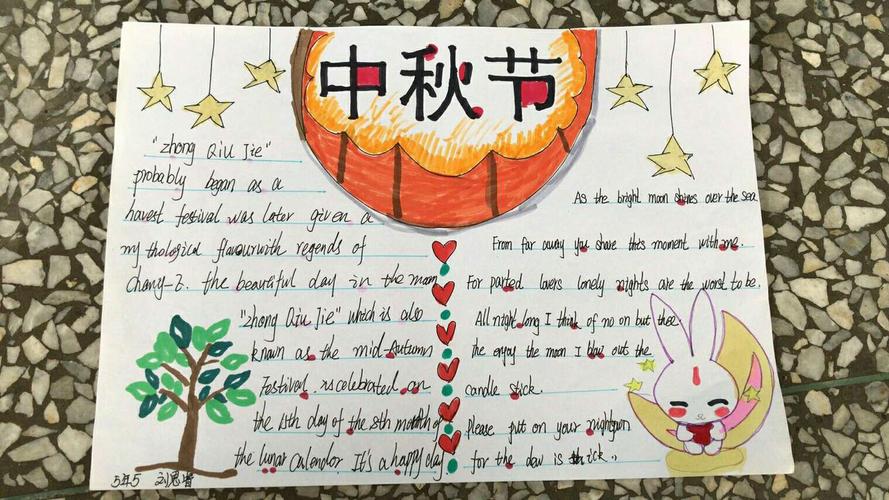 中秋节
"zhong Qiu Jie"
probably began as a
havest festival was later given a
my thological flavourwith regends of
Chang-E. the beautiful day in the moon
"zhong Qiu Jie" which is also
known as the mid-Autumn
Festival. is celebrated on
the 15th day of the 8th month of
the lunar Calendar It's a happy day
As the bright moon shines over the sea.
From far away you share this moment with me.
For parted lovers lonely nights are the worst to be.
All night long I think of no on but thee.
the enjoy the moon I blow out the
candle stick.
Please put on your nightgown
for the dew is thick..
5年5